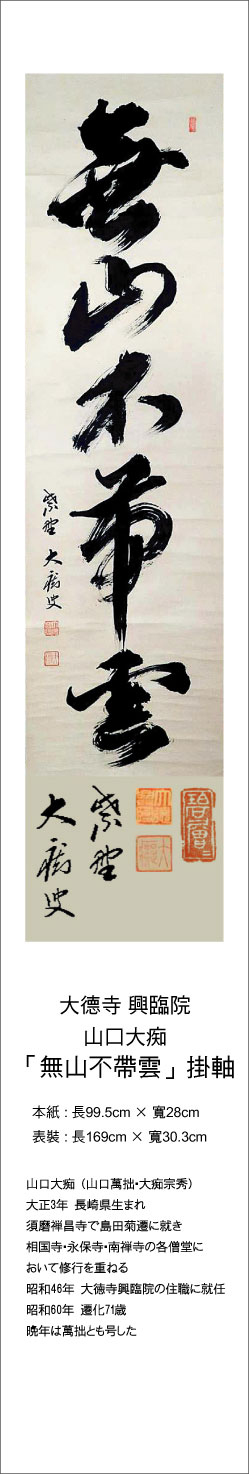 無山不帯雲
紫野 大癡叟
紫野
大癡叟
大德寺 興臨院
山口大痴
「無山不帶雲」掛軸
本紙 : 長99.5cm × 寬28cm
表裝 : 長169cm × 寬30.3cm
山口大痴 (山口萬拙・大痴宗秀)
大正3年 長崎県生まれ
須磨禅昌寺で島田菊遷に就き
相国寺・永保寺・南禅寺の各僧堂に
おいて修行を重ねる
昭和46年 大徳寺興臨院の住職に就任
昭和60年 遷化71歳
晩年は萬拙とも号した